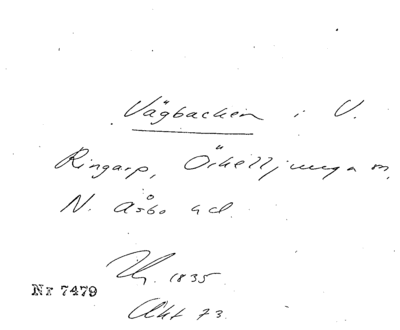 Vägbacken i V.
Ringarp, Örkelljunga sn,
N. Åsbo hd.
1835.
Nr 7479
Akt 73.